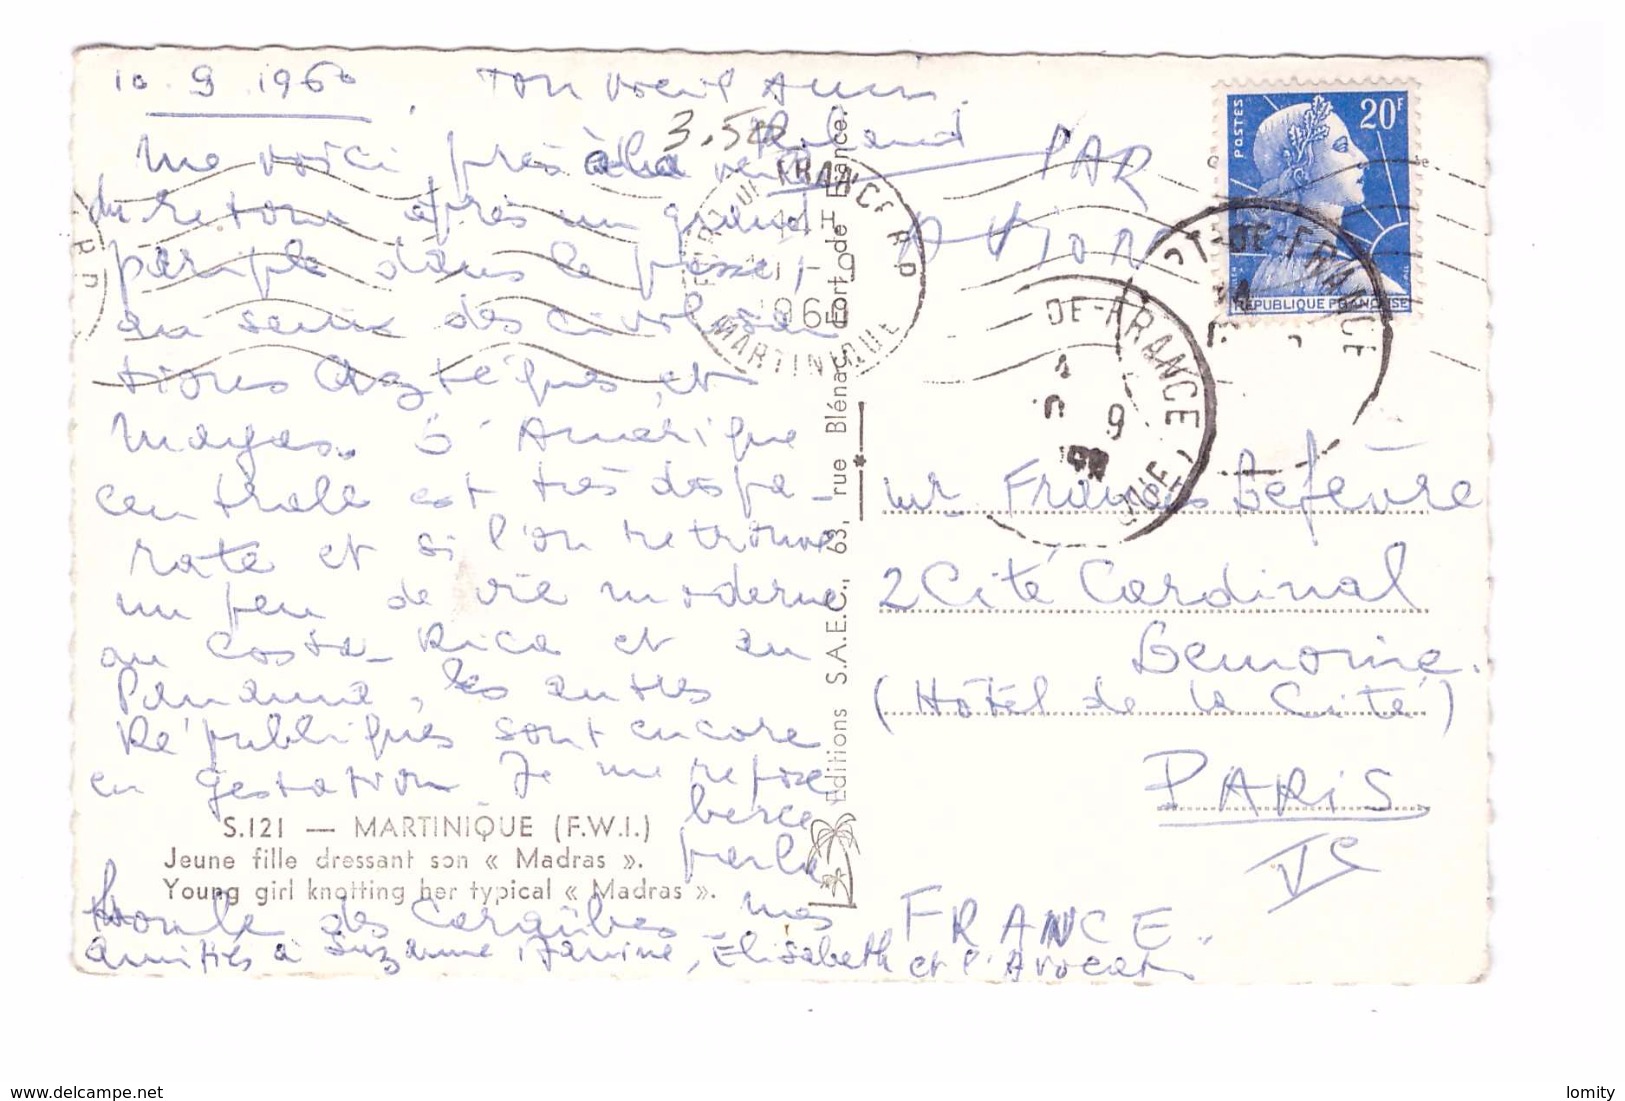 10.9.1960
Ton vieil Ami
Roland
3.50
Me voici près à la
du retour après un grand
périple dans le passé,
au seuil des civilisa
tions Aztèques et
Mayas. L'Amérique
centrale est très dispa-
rate et si l'on retrouve
un peu de vie moderne
au Costa-Rica et au
Panama, les autres
Républiques sont encore
en gestation Je me repose
bercé
par la
houle des Caraïbes mes
amitiés à Suzanne, Janine, Élisabeth et l'Avocat
S.121 — MARTINIQUE (F.W.I.)
Jeune fille dressant son « Madras ».
Young girl knotting her typical « Madras ».
Editions S.A.E.C., 63, rue Blénac Fort-de-France.
PAR
AVION
POSTES
20F
REPUBLIQUE FRANÇAISE
FORT DE FRANCE R.P.
11-9
1960
MARTINIQUE
RT-DE-FRANCE
DE-FRANCE
9
Mr François Lefèvre
2 Cité Cardinal
Lemoine.
(Hôtel de la Cité)
PARIS
Ve
FRANCE
© www.delcampe.net
lomity